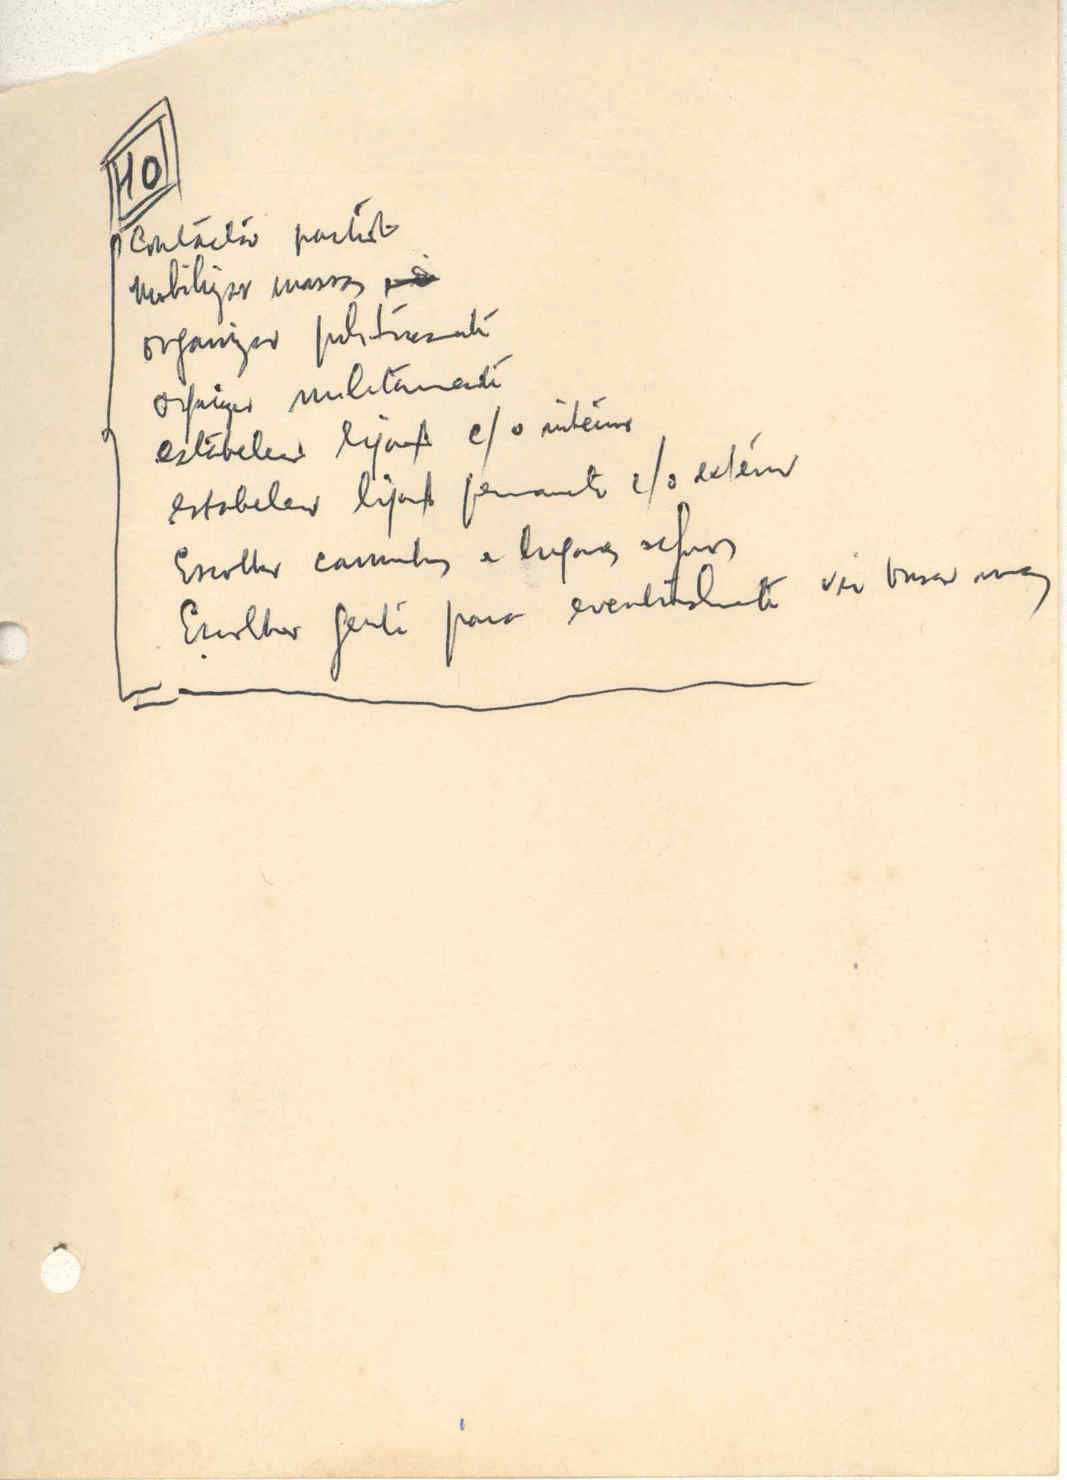 HO
Contactar partido
Mobilizar massas
organizar politicamente
organizar militarmente
estabelecer ligações c/o interior
estabelecer ligações permanente c/o exterior
Escolher caminhos e lugares seguros
Escolher gente para eventualmente vir buscar